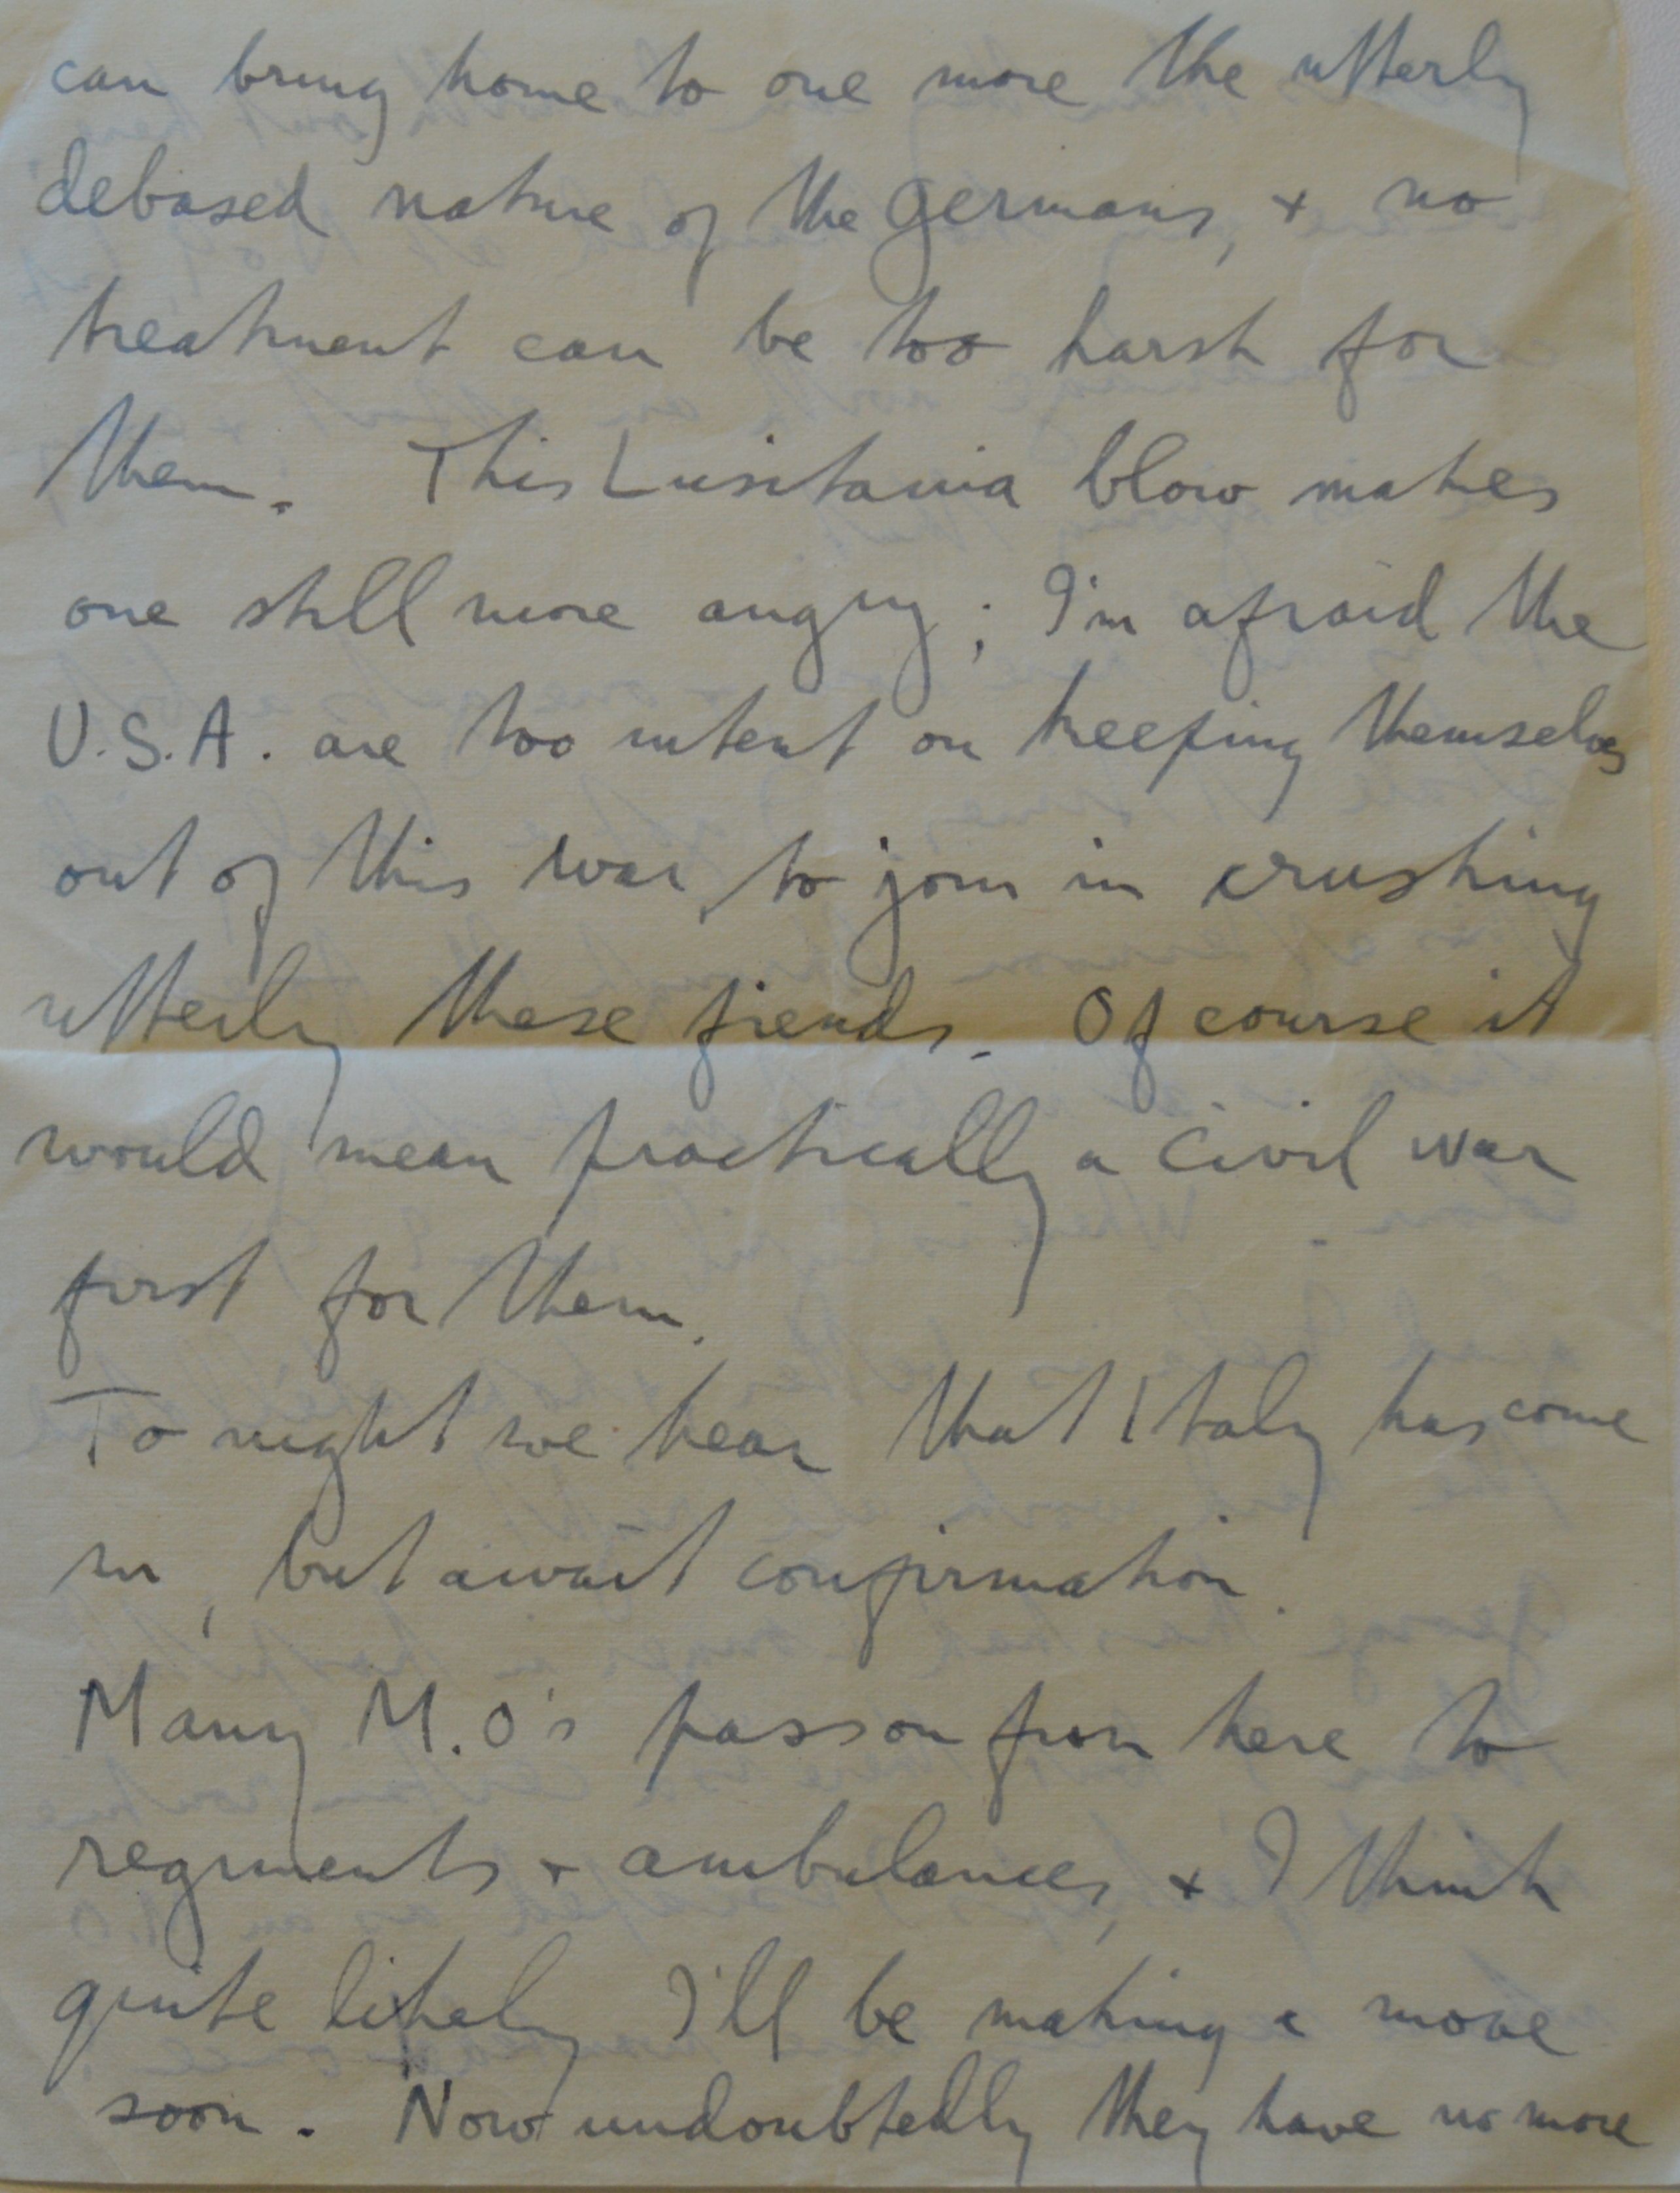 can bring home to one more the utterly
debased nature of the Germans, + no
treatment can be too harsh for
them. This Lusitania blow makes
one still more angry; I'm afraid the
U.S.A. are too intent on keeping themselves
out of this war, to join in crushing
utterly these fiends. Of course it
would mean practically a civil war
first for them.
To night we hear that Italy has come
in, but await confirmation.
Many M.O's pass on from here to
regiments + ambulances, + I think
quite likely I'll be making a move
soon. Now undoubtedly they have no more